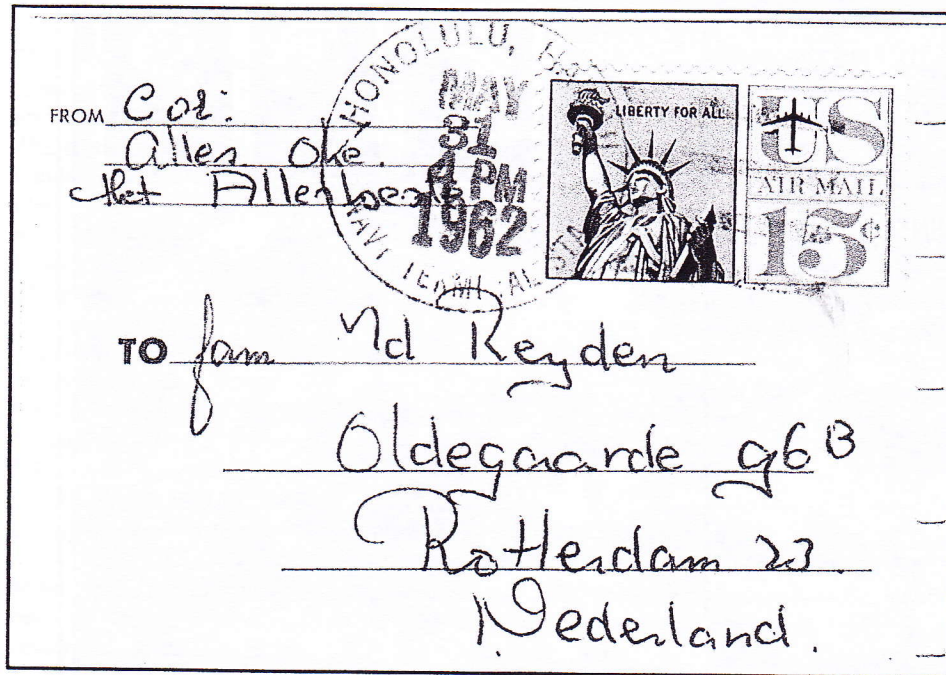 FROM Cor:
Alles Oke.
Het Allerbeste
HONOLULU,
MAY
31
4 PM
1962
LIBERTY FOR ALL
US
AIR MAIL
15¢
TO fam v/d Reyden
Oldegaarde 96B
Rotterdam 23.
Nederland.